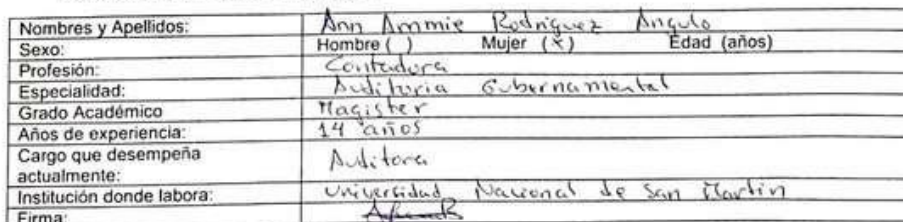 Nombres y Apellidos: Ann Ammie Rodriguez Angulo
Sexo: Hombre ( ) Mujer (x) Edad (años)
Profesión: Contadora
Especialidad: Auditoria Gubernamental
Grado Académico Magister
Años de experiencia: 14 años
Cargo que desempeña
actualmente: Auditora
Institución donde labora: Universidad Nacional de San Martin
Firma: